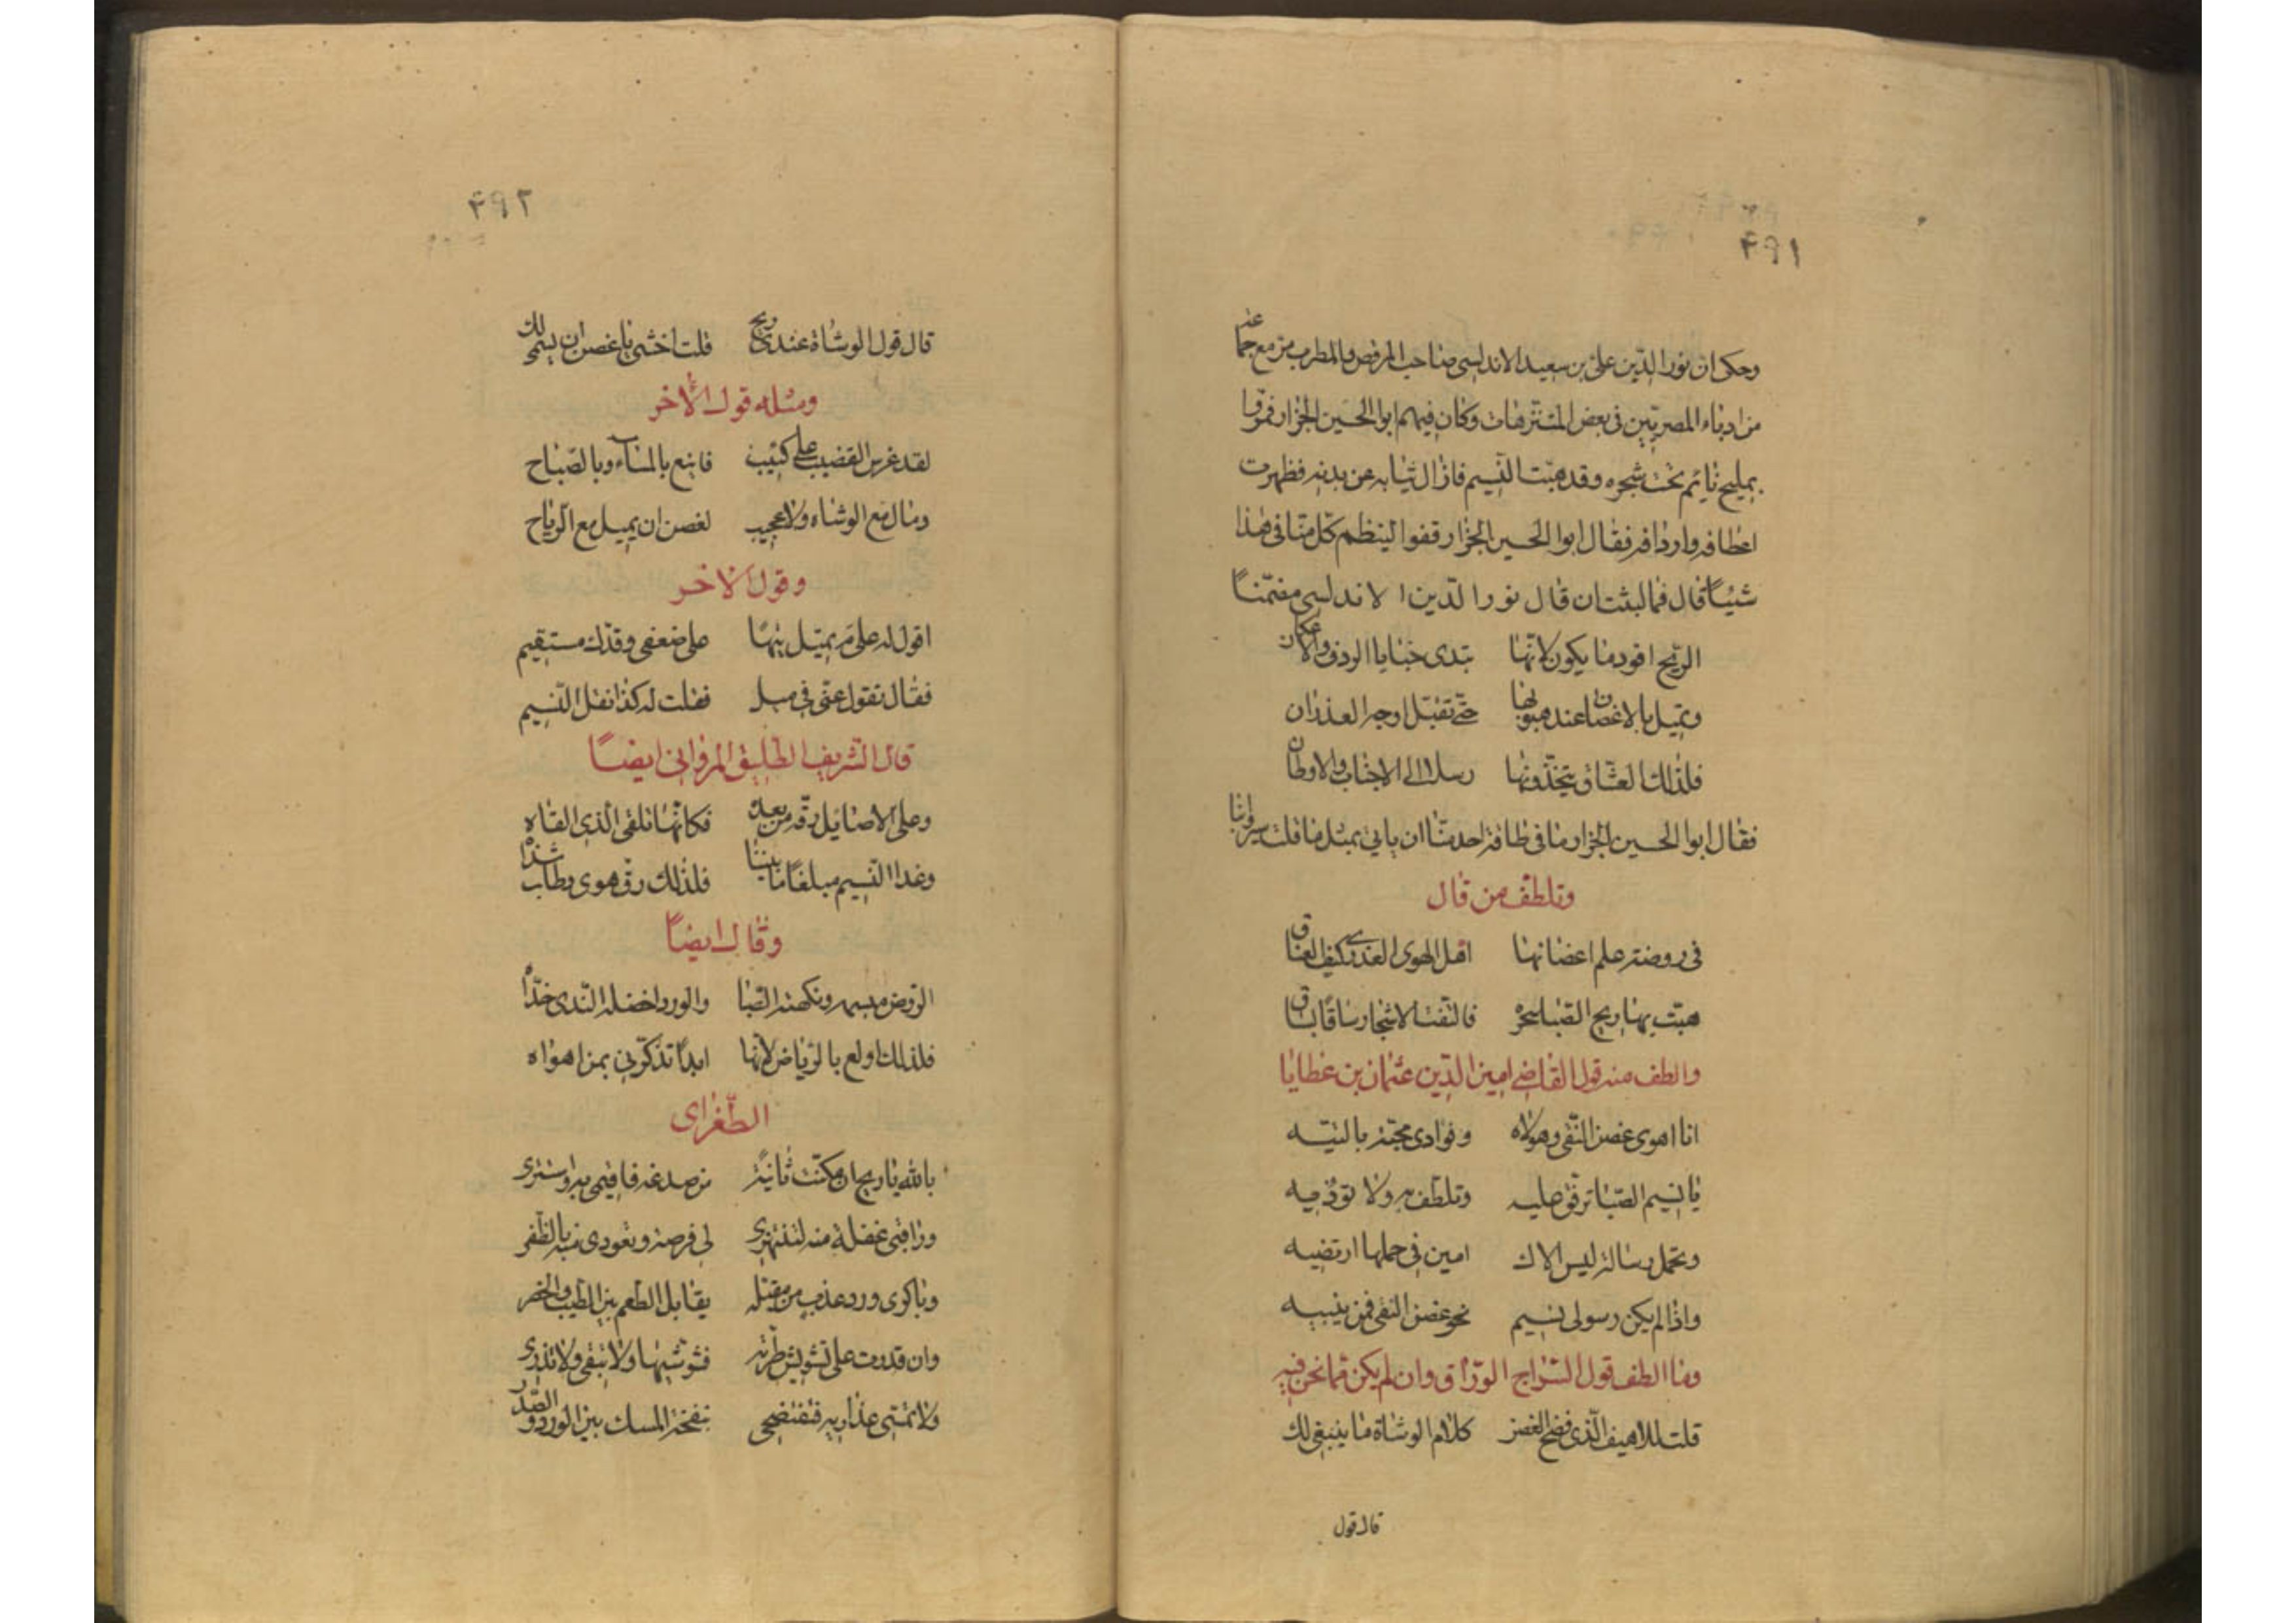 ۴۹۱
وحكى ان نور الدّين علىّ بن سعيد الاندلسى صاحب المرقص والمطرب مرّ مع جماعة
من ادباء المصريّين فى بعض المتنزهات وكان فيهم ابو الحسين الجزار فمرّوا
بمليح نائم تحت شجره وقد هبّت النّسيم فازال ثيابه عن بدنه فظهرت
اعطافه واردافه فقال ابو الحسين الجزّار قفوا لينظم كلّ منّا فى هذا
شيئًا قال فما لبثت ان قال نور الدّين الاندلسى
الرّيح اقود ما يكون لانّها تبدى خبايا الردف والاعكان
وتميّل بالاغصان عند هبوبها حتّى تقبّل اوجه الغدران
فلذلك العشّاق يتّخذونها رسلا الى الاحباب والاوطان
فقال ابو الحسين الجزار ما فى طاقة احدنا ان ياتى بمثل ما قلت
وتلطّف من قال
فى روضة علم اغصانها اهل الهوى العذرى كيف العناق
هبّت بها ريح الصّبا سحرة فالتفّت الاشجار ساقًا بساق
والطف منه قول القاضى امين الدّين عثمان بن عطايا
انا اهوى غصن النّقى وهو لاه وفوادى محبّة بالتيه
يا نسيم الصّبا ترفّق عليه وتلطّف به ولا توذيه
وتحمّل رسالة ليس الاك امين فى حملها ارتضيه
واذا لم يكن رسولى نسيم نحو غصن النقى فمن يثنيه
وما الطف قول السّراج الورّاق وان لم يكن ممّا نحن فيه
قلت للاهيف الّذى فضح الغصن كلام الوشاة ما ينبغى لك
قال قول
۴۹۲
قال قول الوشاة عندى ريح قلت اخشى يا غصن ان يستميلك
ومثله قول الاخر
لقد غرس القضيب على كثيب فاينع بالمساء وبالصّباح
ومال مع الوشاه ولا عجيب لغصن ان يميل مع الرّياح
وقول الاخر
اقول له علىّ مَ يميّل تيهًا على ضعفى وقدّك مستقيم
فقال تقول عنّى فىّ ميل فقلت له كذا نقل النّسيم
قال الشّريف الطّليق المروانى ايضًا
وعلى الاصايل رقّة من بعده فكانّها تلقى الّذى القاه
وغدا النّسيم مبلغًا ما بيننا فلذلك رقّ هوى وطاب شذاه
وقال ايضًا
الرّوض مبسمه ونكهته الصّبا والورد اخضله النّدى خدّاه
فلذلك اولع بالرّياض لانّها ابدًا تذكّرنى بمن اهواه
الطّغراى
بالله يا ريح ان مكّنت ثانيةً من صدغه فاقيمى فيه واستترى
وراقبى غفلة منه لتنتهزى لى فرصة وتعودى منه بالظّفر
وباكرى ورد عذب من مقبّله يقابل الطّعم بين الطّيب والخصر
وان قدرت على تشويش طرّته فشوّشيها ولا تبقى ولا تذرى
ولا تمسّى عذاريه فتفتضحى بنفحة المسك بين الورد والصّدر